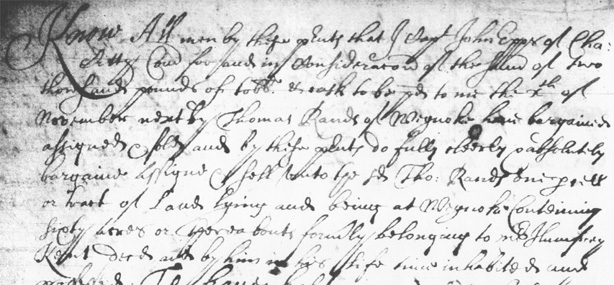 Know All men by these p'sents that I Capt John Epps of Cha:
Citty Coun for and in Consideracon of the sume of two
thousands pounds of tobb: & cask to be pd to me the xth of
November next by Thomas Rands of Wignoke have bargained
assigned & sold and by these p'sents do fully cleerly & absolutely
bargaine assigne & sell unto the sd Tho: Rands one peell
or tract of Land lying and being at Wignoke Conteining
sixty acres or thereabouts formly belonging to mr Humfrey
Kent decd and by him in his life time inhabited and